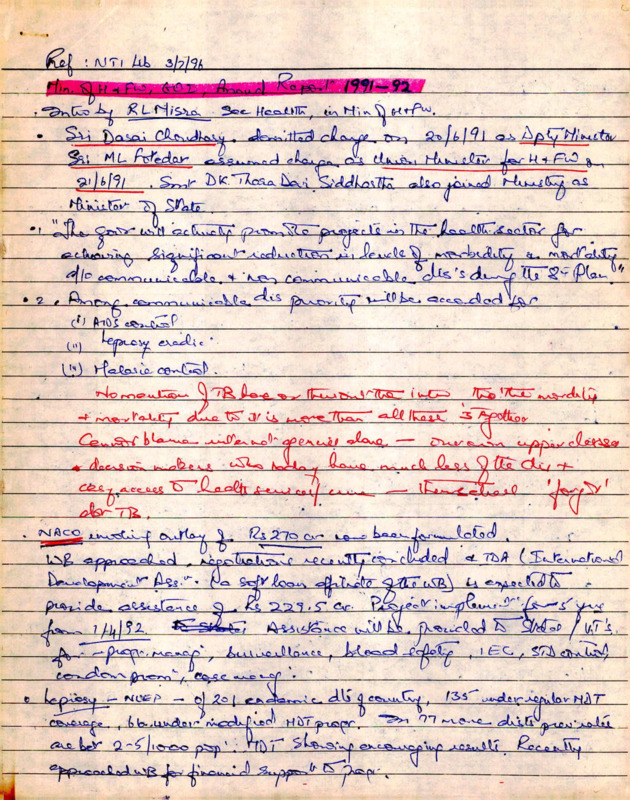 Ref : NTI Lib 3/7/96
Min. of H+FW, GOI, Annual Report 1991-92
. Intro by RL Misra Sec Health, in Min of H+FW.
• Sri Dasai Chowdhary demitted charge on 20/6/91 as Dpty Minister
Sri ML Fotedar assumed charge as Union Minister for H+FW on
21/6/91. Smt DK Thara Devi Siddhartha also joined Ministry as
Minister of State.
•1 "The govt will actively promote projects in the health sector for
achieving significant reduction in levels of morbidity & mortality
a/c communicable + non communicable dis's during the 8th Plan"
•2. Among communicable dis priority will be accorded for
(i) AIDS control
(ii) Leprosy eradic
(iii) Malaria control.
No mention of TB here or thruout the intro tho' the morbidity
+ mortality due to it is more than all these 3 together
Cannot blame internat agencies alone — our own upper classes
+ decision makers who today have much less of the dis +
easy access to health services/ care — themselves 'forget'
abt TB.
. NACO involving outlay of Rs 270 cr have been formulated.
WB approached, negotiations recently concluded & IDA (International
Development Assn. (a soft loan affiliate of the WB) is expected to
provide assistance of Rs 229.5 cr. Project implement for 5 yrs
from 1/4/92 Assistance will be provided to States / UT's.
for - progr. manag, surveillance, blood safety, IEC, STD control,
condom prom, case manag.
• Leprosy - NLEP - of 201 endemic dts of country, 135 under regular MDT
coverage, 66 under modified MDT progr. In 77 more dists prev rates
are bet 2-5/1000 pop. MDT showing encouraging results. Recently
approached WB for financial support to progr.